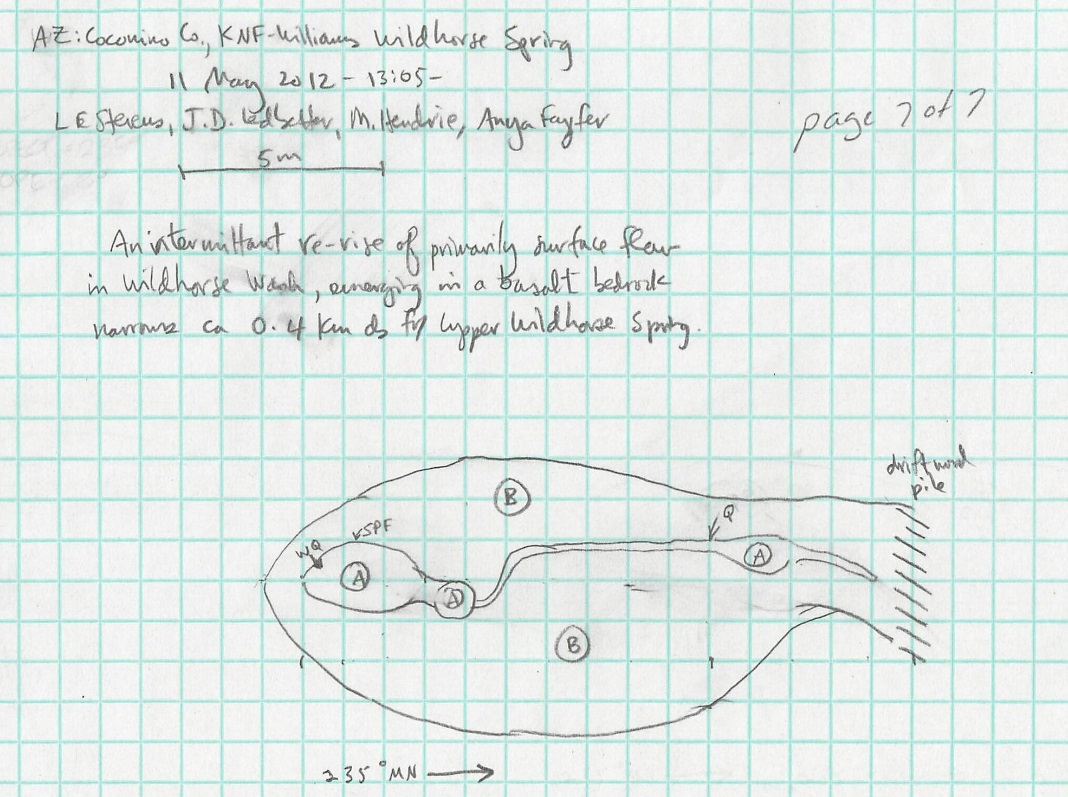 AZ: Coconino Co., KNF-Williams Wildhorse Spring
11 May 2012 - 13:05 -
L E Stevens, J.D. Ledbetter, M. Hendrie, Anya Fayfer
page 7 of 7
5m
An intermittant re-rise of primarily surface flow
in Wildhorse Wash, emerging in a basalt bedrock
narrows ca 0.4 km ds fr Upper Wildhorse Spring.
driftwood
pile
B
Q
SPF
WQ
A
A
A
B
235° MN